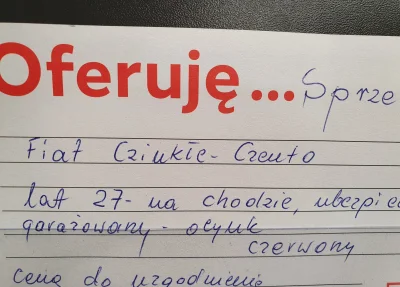 Oferuję... Sprze
Fiat Cziukłe-Czeuto
lat 27- na chodzie, ubezpie
garażowany - ocyuk
czerwony
cena do uzgodnienia